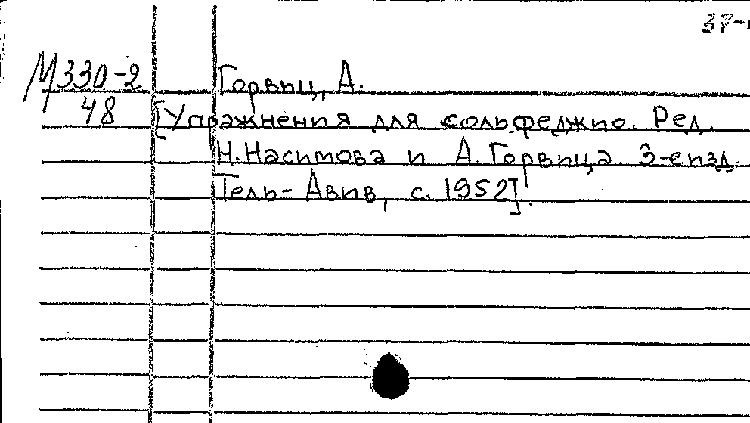 37-
М330-2
48
Горвиц, А.
[Упражнения для сольфеджио. Ред.
Н. Насимова и А. Горвица. 3-е изд.
Тель-Авив, с. 1952].